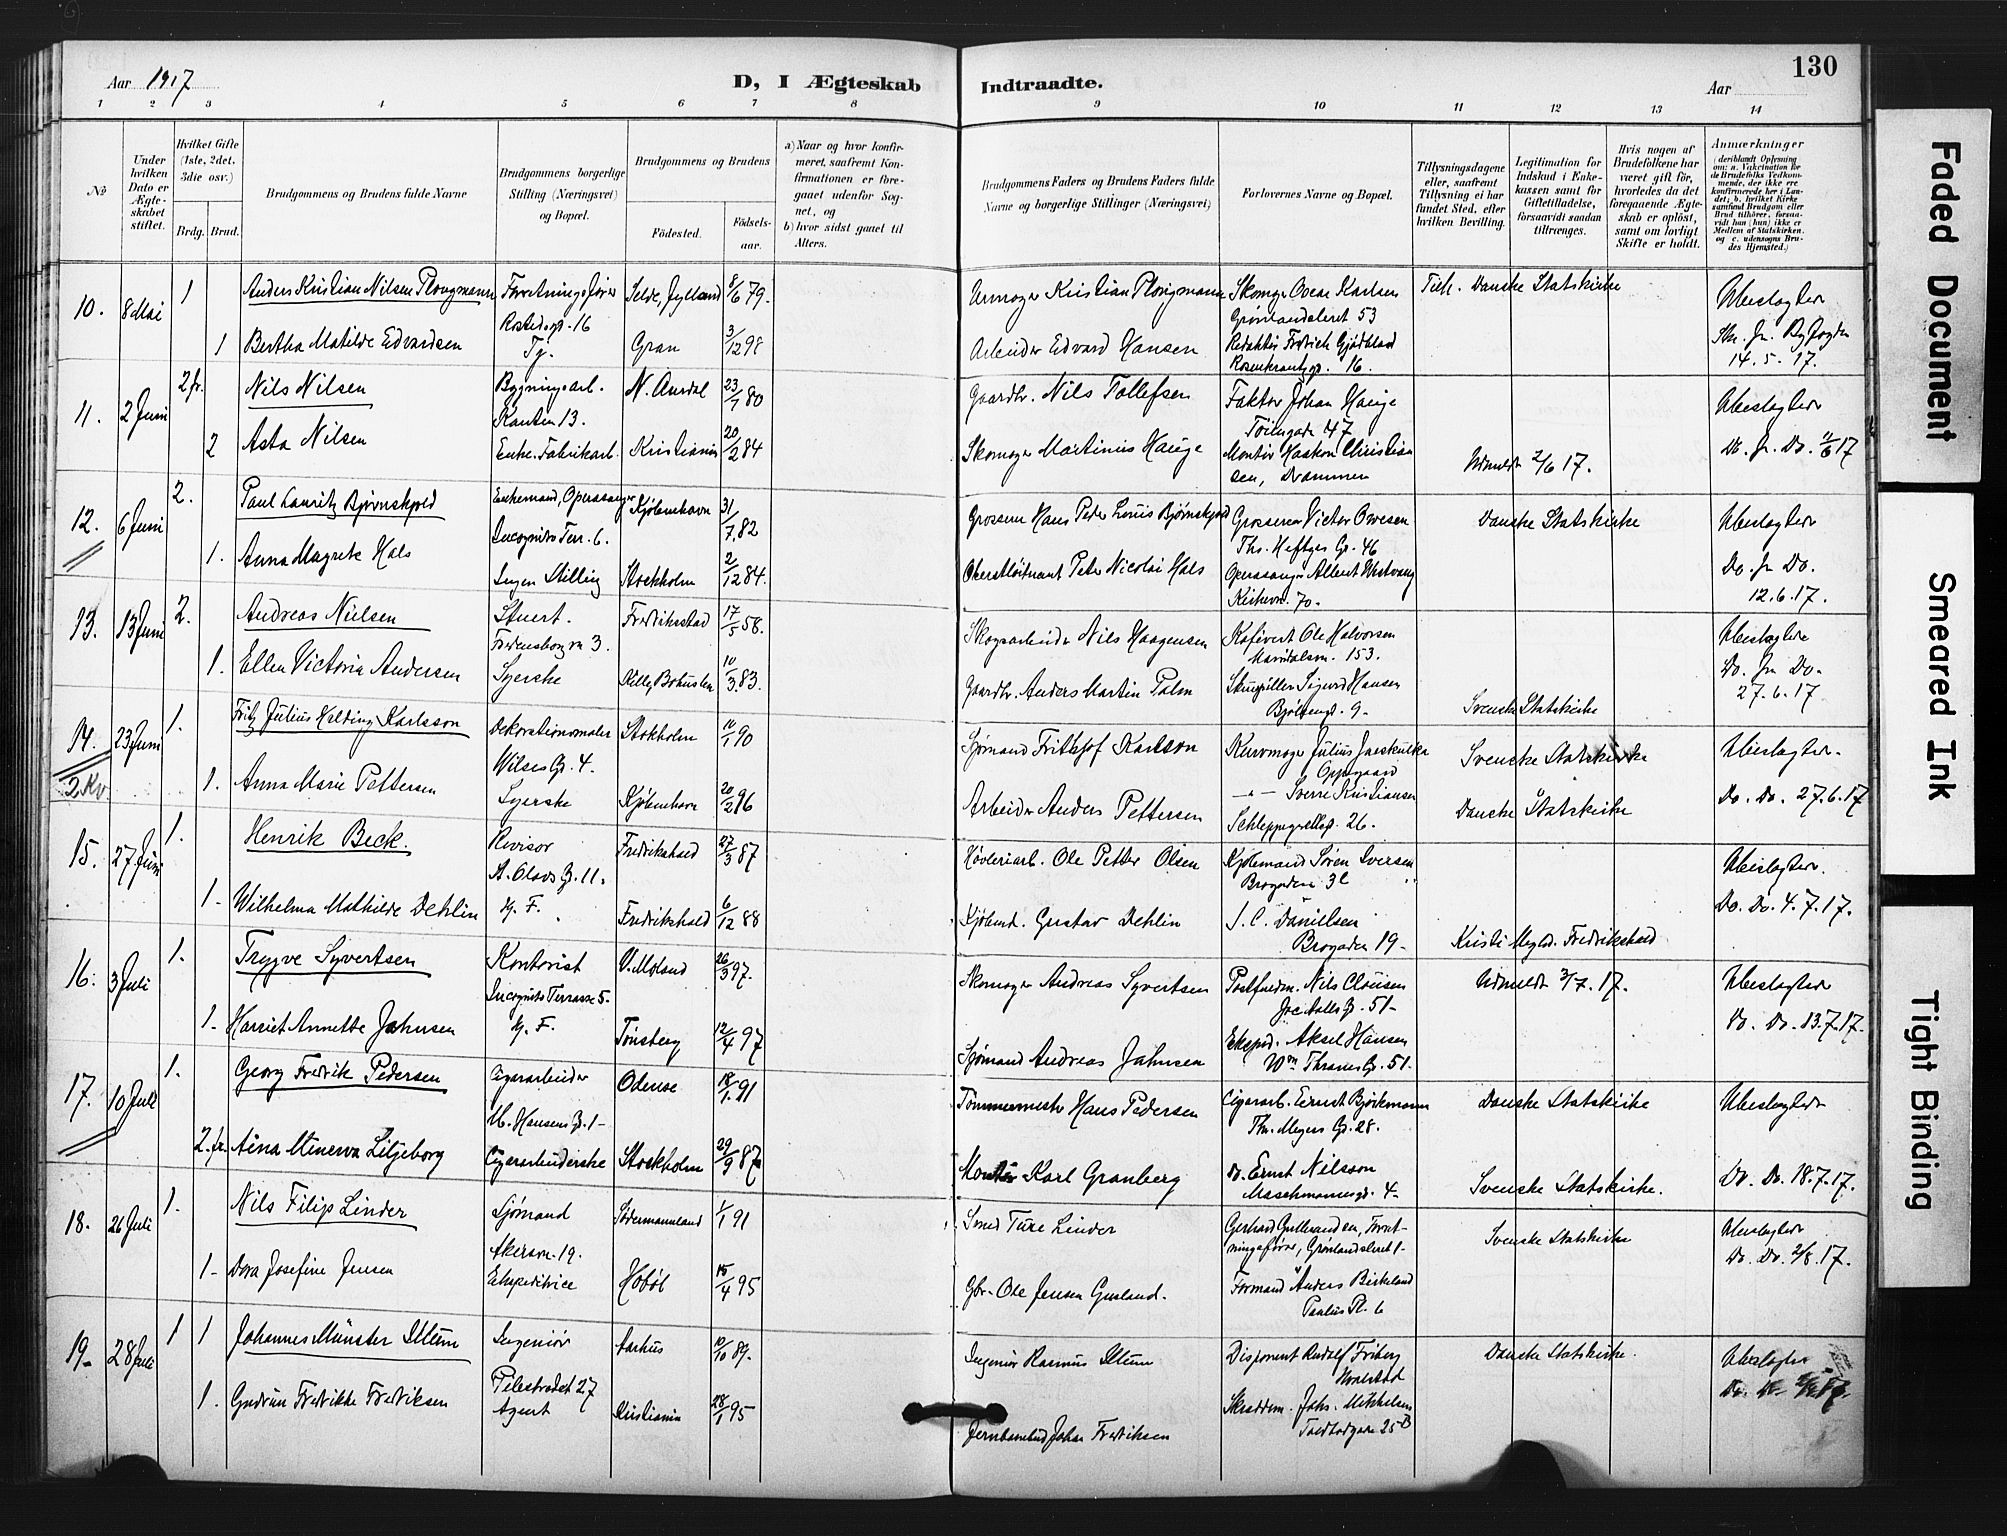 Aar 1917
D, I Ægteskab Indtraadte.
Aar
130
1 2 3 4 5 6 7 8 9 10 11 12 13 14
No
Under hvilken Dato er Ægteskabet stiftet.
Hvilket Gifte (1ste, 2det, 3die osv.)
Brdg. Brud.
Brudgommens og Brudens fulde Navne
Brudgommens borgerlige Stilling (Næringsvei) og Bopæl.
Brudgommens og Brudens
Fødested.
Fødselsaar.
a) Naar og hvor konfirmeret, saafremt Konfirmationen er foregaaet udenfor Sognet, og
b) hvor sidst gaaet til Alters.
Brudgommens Faders og Brudens Faders fulde Navne og borgerlige Stillinger (Næringsvei)
Forlovernes Navne og Bopæl.
Tillysningsdagene eller, saafremt Tillysning ei har fundet Sted, efter hvilken Bevilling.
Legitimation for Indskud i Enkekassen samt for Giftetilladelse, forsaavidt saadan tiltrænges.
Hvis nogen af Brudefolkene har været gift før, hvorledes da det foregaaende Ægteskab er opløst, samt om lovligt Skifte er holdt.
Anmærkninger
(deriblandt Oplysning om: a. Vakcination for de Brudefolks Vedkommende, der ikke ere konfirmerede her i Landet; b. hvilket Kirkesamfund Brudgom eller Brud tilhører, forsaavidt han (hun) ikke er Medlem af Statskirken. og c. udensogns Brudes Hjemsted.)
10. 8 Mai 1 Anders Kristian Nilsen Plougmann Forretningsfører Selde, Jylland 8/6 79. Urmager Kristian Plougmann Skomager Oscar Karlsen Danske Statskirke Ubeslægtede
Rostedsgt. 16 Grønlandsleret 53
1 Bertha Matilde Edvardsen Tj. Gran 3/12 98 Arbeider Edvard Hansen Redaktør Fredrik Gjödblad
Rosenkrantzgt. 16. 14.5.17.
11. 2 Juni 2 fr. Nils Nilsen Bygningsarb. N. Aurdal 23/1 80 Gaardbr. Nils Tollefsen Faktor Johan Hauge Ubeslægtede
Kanten 13. Töiengade 47
2 Asta Nilsen Enke. Fabrikarb. Kristiania 20/2 84 Skomager Martinius Hauge Montör Haakon Christiansen, Drammen Udmeldt 2/6 17.
12. 6 Juni 2. Paul Lauritz Bjørnskjold Enkemand, Operasanger Kjøbenhavn 31/7 82 Grosserer Hans Peder Louis Bjørnskjold Grosserer Victor Owesen Danske Statskirke Ubeslægtede
Incognito Terr. 6. Ths. Heftyes Gt. 46
1. Anna Magrete Hals Ingen Stilling Stockholm 2/12 84. Oberstløitnant Peter Nicolai Hals Operasanger Albert Westvang Do. fr. Do.
70. 12.6.17.
13. 13 Juni 2. Andreas Nielsen Stuert. Fredriksstad 17/5 58. Skogsarbeider Nils Haagensen Kafévert Ole Halvorsen Ubeslægtede
Fredensborgvn 3. Maridalsvn. 153. Do. fr. Do.
1. Ellen Victoria Andersen Syerske Bohuslen 10/3 83. Gaardbr. Anders Martin Palm Sigurd Hansen Svenske Statskirke 27.6.17
Bjölsengt. 9.
14. 23 Juni 1. Fritz Julius Helding Karlsson Dekorationsmaler Stokholm 11/1 90 Sjømand Frithjof Karlson Kurvmager Julius Svenske Statskirke Ubeslægtede.
Wilses Gt. 4. Oppegaard
2 Kv. 1. Anna Marie Pettersen Syerske Kjöbenhavn 20/2 96 Arbeider Anders Pettersen Sverre Kristiansen Danske Statskirke Do. Do. 27.6.17
Schleppegrellsgt. 26.
15. 27 Juni 1. Henrik Beck. Revisor Fredrikshald 27/3 87 Høvleriarb. Ole Petter Olsen Kjøbmand Søren Iversen Ubeslægtede.
St. Olavs Gt. 11. Brogaden 3
1. Wilhelma Mathilde Dehlin Kj. F. Fredrikshald 6/12 88 Kjöbmd. Gustav Dehlin J. C. Danielsen Do. Do. 4.7.17.
Brogaden 19 Fredrikshald
16. 3 Juli 1. Trygve Syvertsen Kontorist V. Moland 26/3 97. Skomager Andreas Syvertsen Nils Clausen Udmeldt 3/7.17. Ubeslægtede
Incognito Terrasse 5. Joc Aalls Gt. 51
1. Harriet Annette Jahnsen Kj. F. Tönsberg 12/4 97 Sjømand Andreas Jahnsen Eksped. Aksel Hansen Do. Do. 13.7.17.
Wm Thranes Gt. 51.
17. 10 Juli 1. Georg Fredrik Pedersen Cigararbeider Odense 18/1 91 Tömmermester Hans Pedersen Cigararb. Ernst Björkmann Danske Statskirke Ubeslægtede
M. Hansens Gt. 1 Thv. Meyers Gt. 28.
2. fr. Aina Minerva Liljeborg Cigararbeiderske Stockholm 29/9 87 Montör Karl Granberg Do. Ernst Nilsson Svenske Statskirke. Do. Do. 18.7.17.
Maschmannsgt. 4
18. 26 Juli 1. Nils Filip Linder Sjömand Södermannland 1/1 91 Smed Ture Linder Gerhard Gulbrandsen, Forretningsfører, Grönlandsleret 1 Svenske Statskirke Ubeslægtede
Akersvn. 19. Do. Do. 2/8.17.
1 Dora Josefine Jensen Ekspeditrice Hobøl 15/4 95 Gbr. Ole Jensen Gusland. Formand Anders Birkeland
Paulus Pl. 6
19 28 Juli 1 1 Johannes Münster Iltum Ingeniør Aarhus 10/10 89. Ingeniör Rasmus Iltum Disponent Rudolf Friberg Danske Statskirke. Ubeslægtede
Pilestrædet 27
1. Gudrun Fredrikke Fredriksen Agent Kristiania 28/1 95 Johan Fredriksen Skræddem. Johs. Mikkelsen
Toldbodgaden 25 B
Faded Document
Smeared Ink
Tight Binding